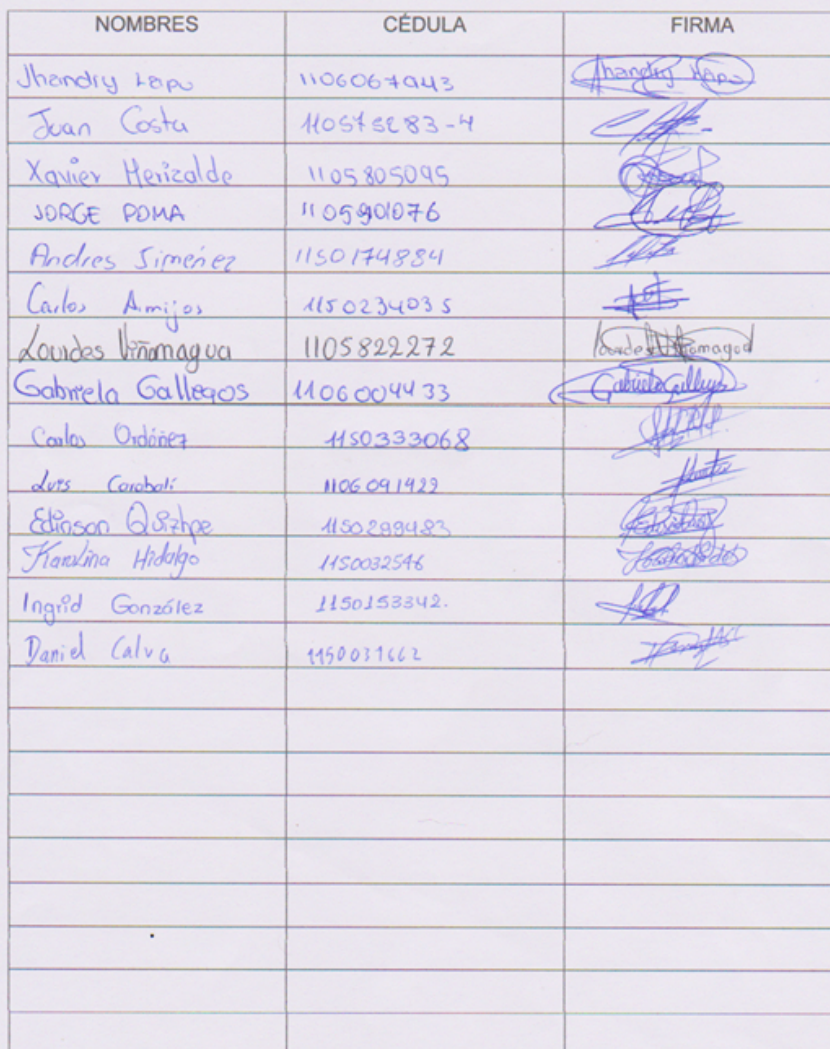 NOMBRES CÉDULA FIRMA
Jhandry Lapu 1106067943 Jhandry Lapu
Juan Costa 110575283-4
Xavier Merizalde 1105805095
JORGE POMA 1105901076
Andres Jimenez 1150174884
Carlos Armijos 1150234035
Lourdes Viñamagua 1105822272 Lourdes Viñamagua
Gabriela Gallegos 1106004433 Gabriela Gallegos
Carlos Ordóñez 1150333068
Luis Carabalí 1106091422
Edinson Quizhpe 1150299483
Karolina Hidalgo 1150032546
Ingrid González 1150153342.
Daniel Calva 1150031662